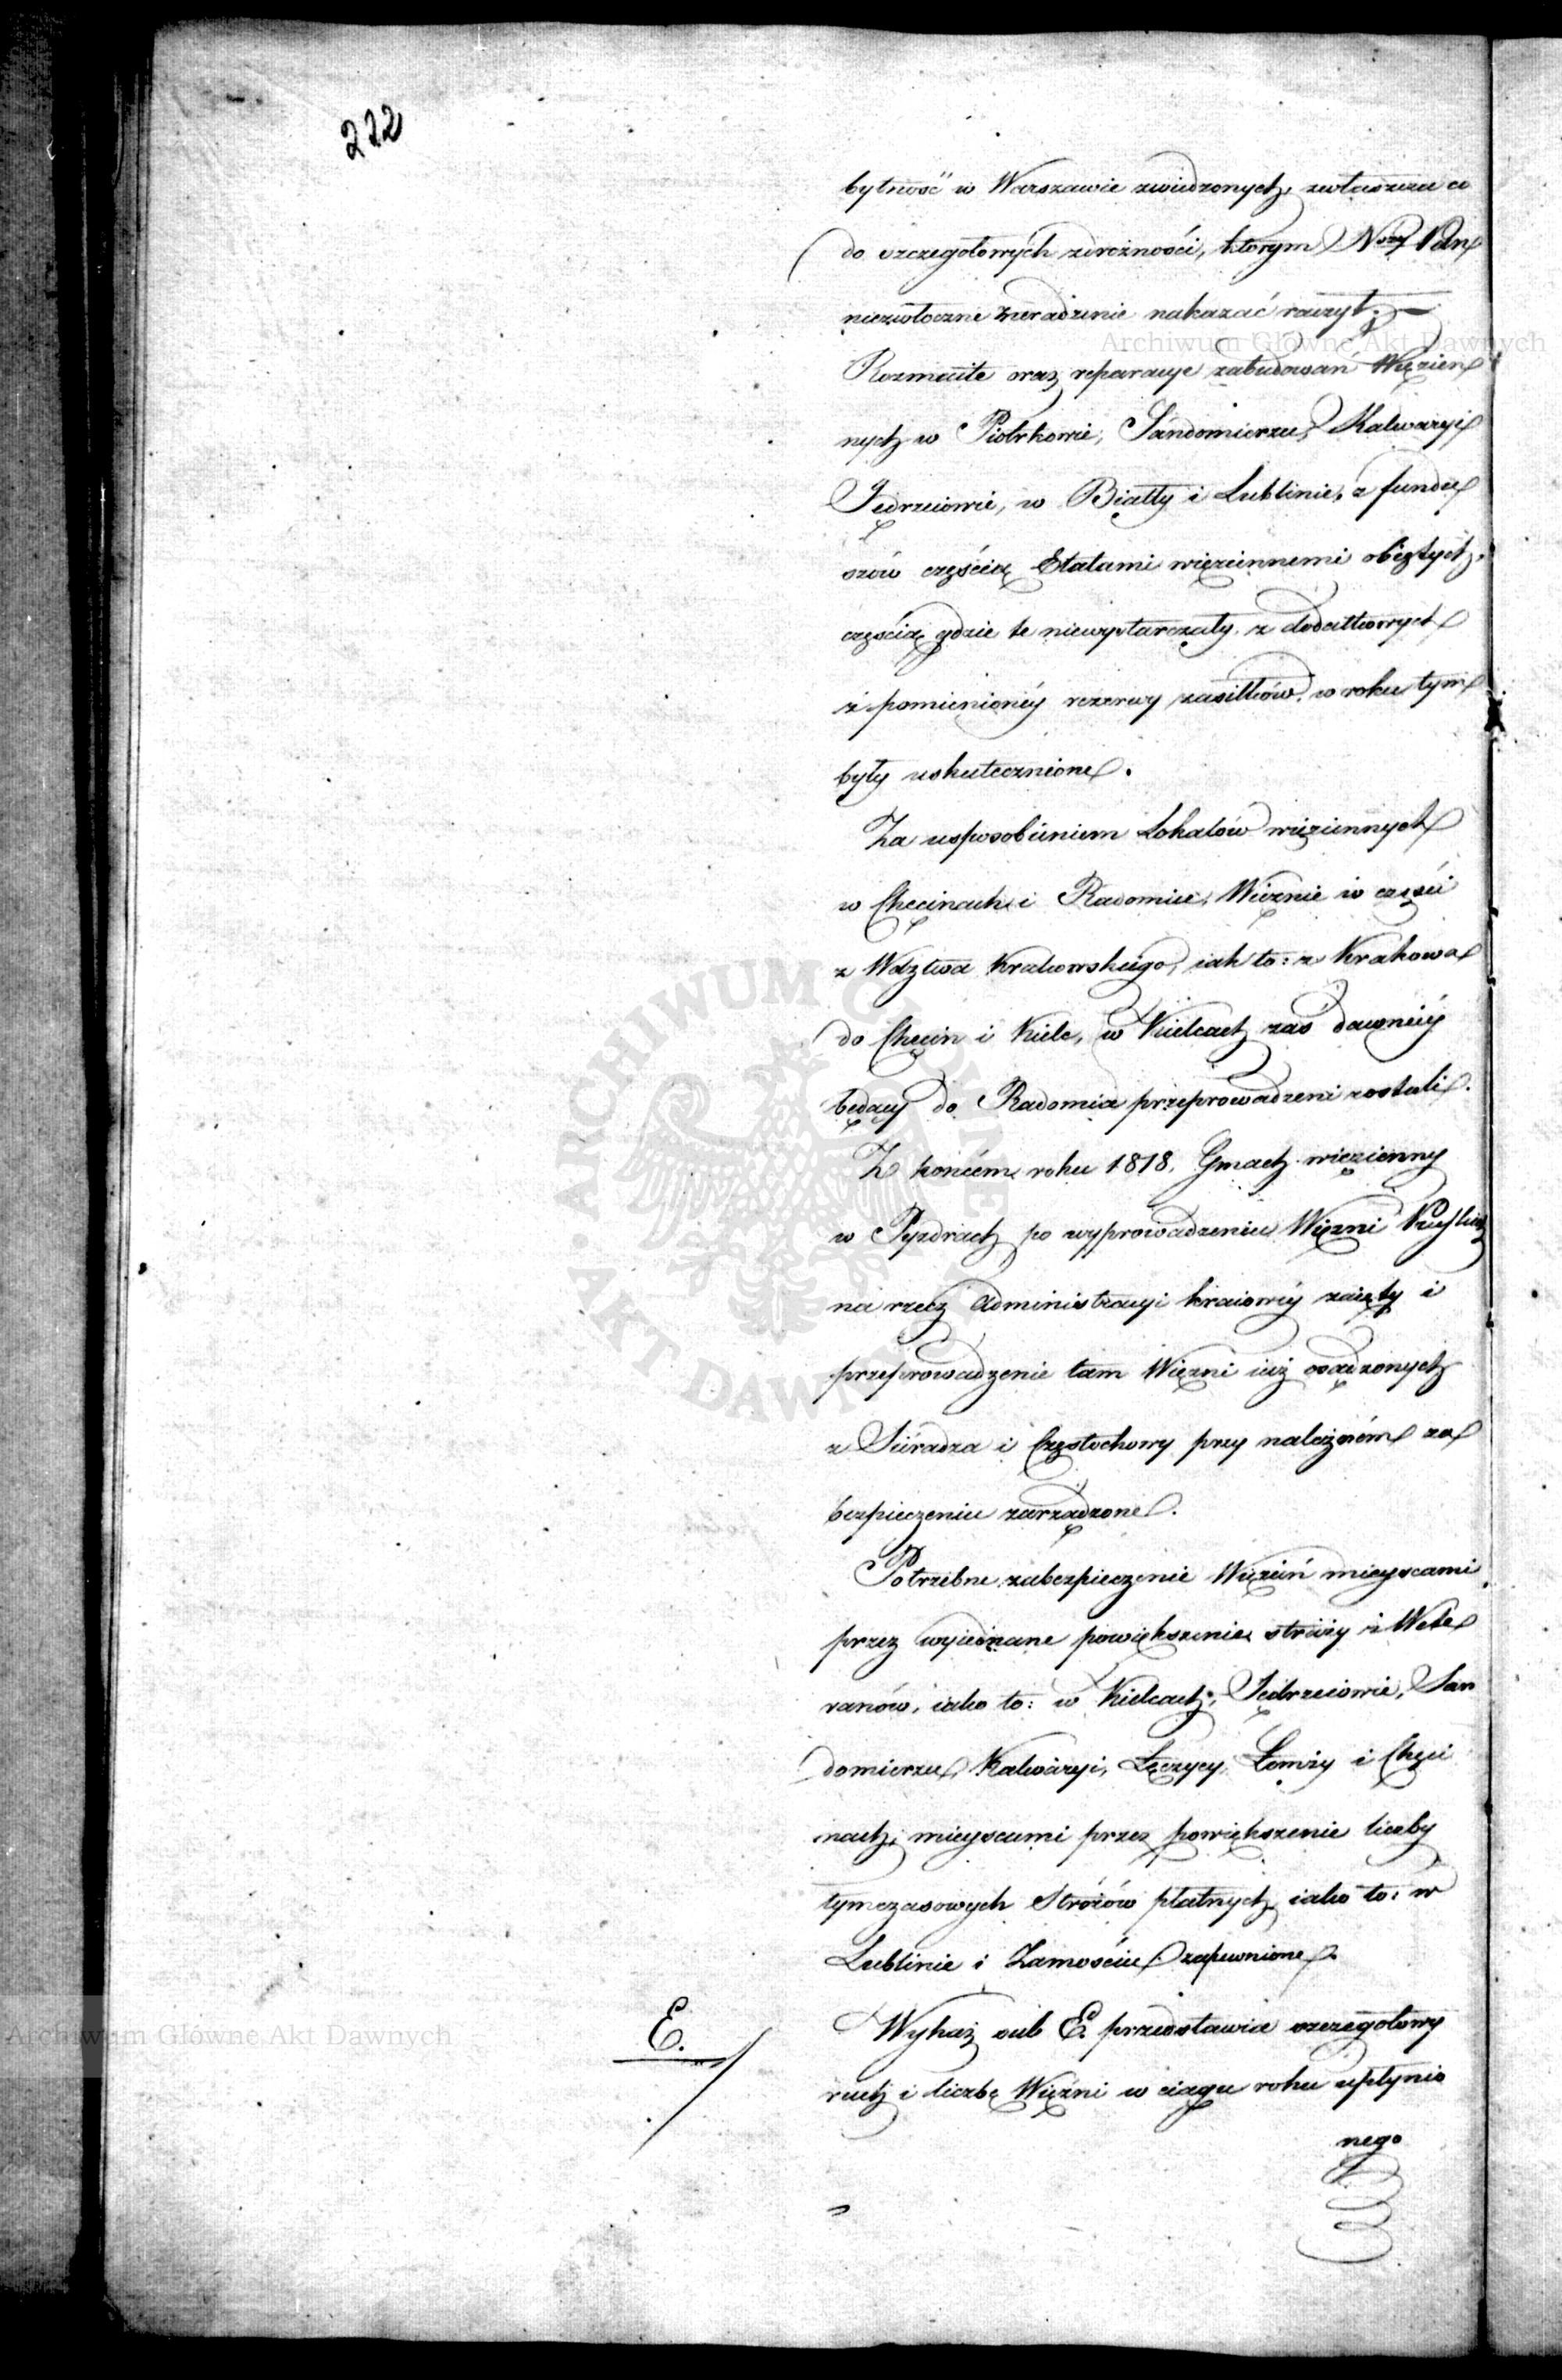 222
bytność w Warszawie zwiedzonych, zwłaszcza co
do szczegołowych zdrożności, ktorym Nayj. Pan
niezwłoczne zaradzenie nakazać raczył.
Archiwum Główne Akt Dawnych
Rozmaite oraz reparacye zabudowań Więzien
nych w Piotrkowie, Sandomierzu, Kalwaryi
Jędrzeiowie, w Biały i Lublinie, z fundu
szów częścią Etatami więziennemi obiętych,
częścią gdzie te niewystarczały, z dodatkowych
z pomienionéy rezerwy zasiłków, w roku tym
były uskutecznione.
Za usposobieniem Lokalów więziennych
w Chęcinach i Radomiu, Więznie w części
z Wdztwa Krakowskiego, iak to: z Krakowa
do Chęcin i Kielc, w Kielcach zaś dawniéy
będący do Radomia przeprowadzeni zostali.
Z końcem roku 1818. Gmach więzienny
w Pyzdrach po wyprowadzeniu Więzni Pruskich
na rzecz Administracyi kraiowéy zaięty i
przeprowadzenie tam Więzni iuż osądzonych
z Sieradza i Częstochowy przy należném za
bezpieczeniu zarządzone.
Potrzebne zabezpieczenie Więzień mieyscami
przez wyiednane powiększenie straży z Wete
ranów, iako to: w Kielcach, Jędrzeiowie, San
domierzu, Kalwaryi, Łęczycy, Łomży i Chęci
nach; mieyscami przez powiększenie liczby
tymczasowych Strożów płatnych, iako to: w
Lublinie i Zamościu, zapewnione.
E.
Archiwum Główne Akt Dawnych
Wykaz sub E. przedstawia szczegołowy
ruch i liczbę Więźni w ciągu roku upłynio
nego
ARCHIWUM GŁÓWNE AKT DAWNYCH